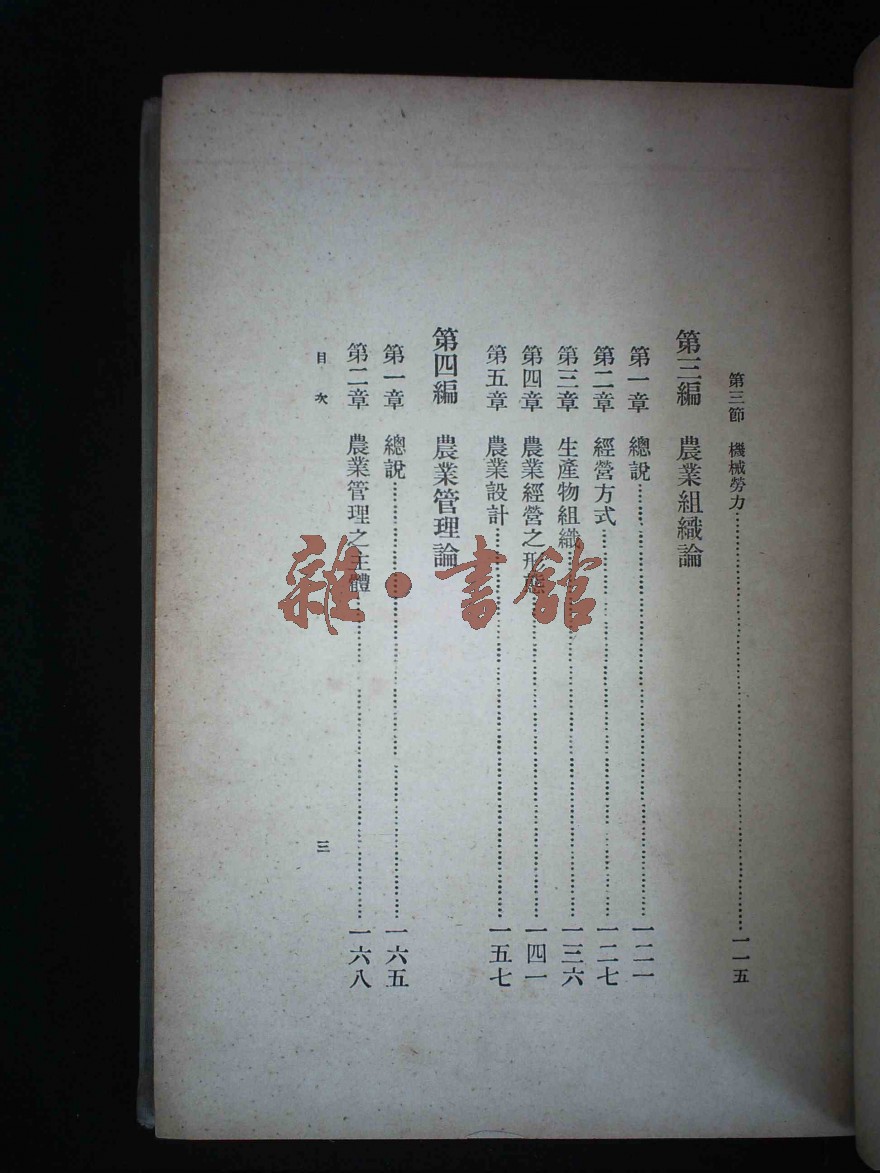 第三節 機械勞力……一一五
第三編 農業組織論
第一章 總說……一二一
第二章 經營方式……一二七
第三章 生產物組織……一三六
第四章 農業經營之形態……一四一
第五章 農業設計……一五七
第四編 農業管理論
第一章 總說……一六五
第二章 農業管理之主體……一六八
目次 三
雜·書館